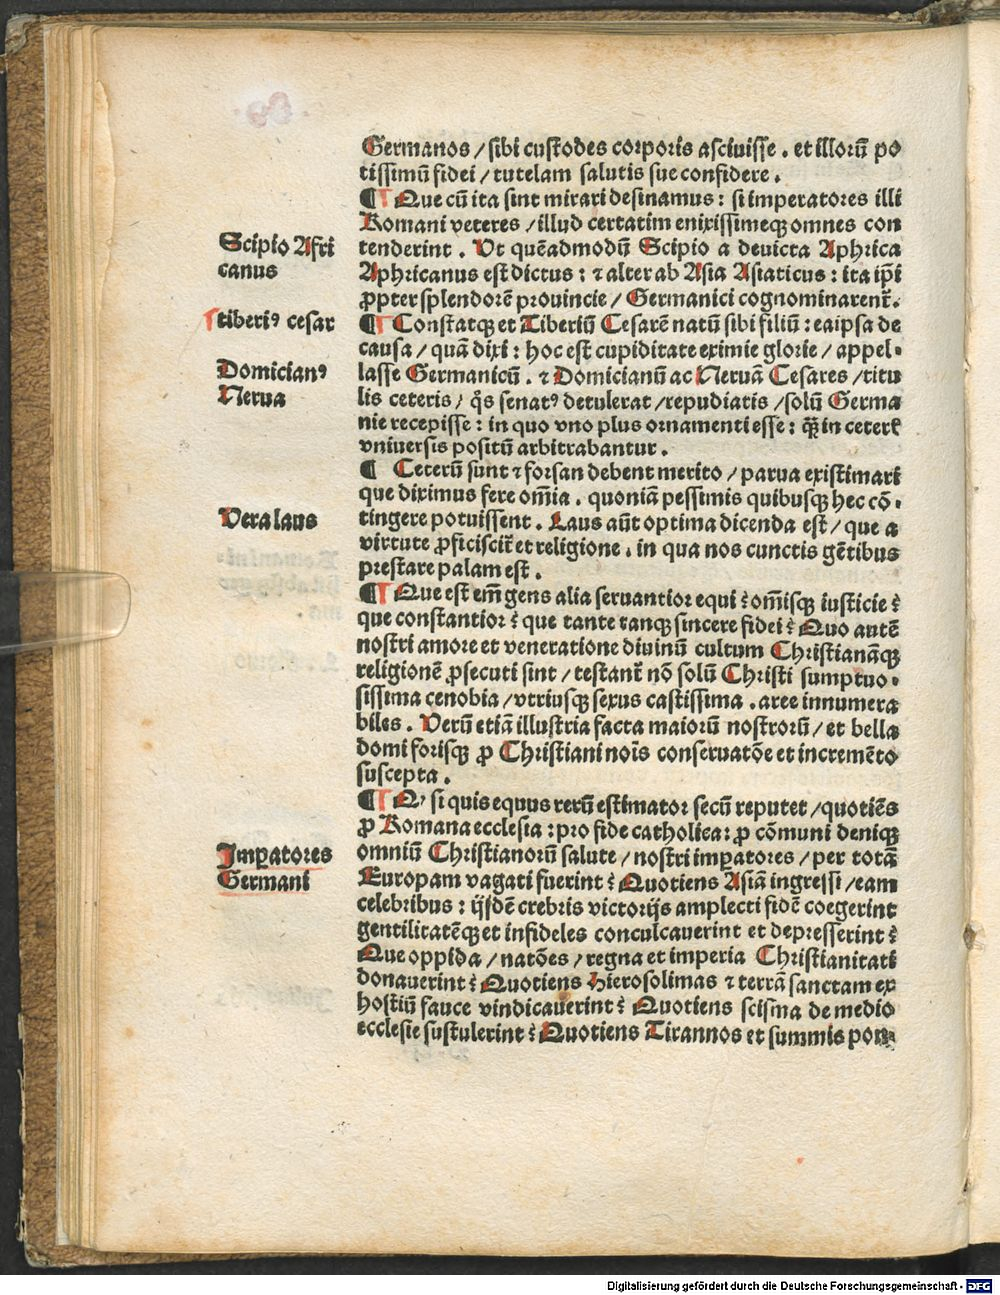 Germanos / sibi custodes corporis asciuisse . et illorū po
tissimū fidei / tutelam salutis sue confidere .
¶ Que cū ita sint mirari desinamus : si imperatores illi
Romani veteres / illud certatim enixissimeqꝫ omnes con
Scipio Afri
canus
tenderint . Ut quēadmodū Scipio a deuicta Aphrica
Aphricanus est dictus : ⁊ alter ab Asia Asiaticus : ita ip̄i
ꝓpter splendorē prouincie / Germanici cognominarent᷑.
tiberiꝰ cesar
¶ Constatqꝫ et Tiberiū Cesarē natū sibi filiū : eaipsa de
causa / quā dixi : hoc est cupiditate eximie glorie / appel⸗
Domicianꝰ
Nerua
lasse Germanicū . ⁊ Domicianū ac Neruā Cesares / titu
lis ceteris / q̄s senatꝰ detulerat / repudiatis / solū Germa
nie recepisse : in quo vno plus ornamenti esse : qȝ̄ in ceterꝭ
vniuersis positū arbitrabantur .
¶ Ceterū sunt ⁊ forsan debent merito / parua existimari
que diximus fere om̄ia . quoniā pessimis quibusqꝫ hec cō⸗
Vera laus
tingere potuissent . Laus aūt optima dicenda est / que a
virtute ꝓficiscit᷑ et religione . in qua nos cunctis gētibus
prestare palam est .
¶ Que est em̄ gens alia seruantior equi ? om̄isqꝫ iusticie ?
que constantior ? que tante tanqꝫ sincere fidei ? Quo autē
nostri amore et veneratione diuinū cultum Christianāqꝫ
religionē ꝓsecuti sint / testant᷑ nō solū Christi sumptuo⸗
sissima cenobia / vtriusqꝫ sexus castissima . aree innumera
biles . Verū etiā illustria facta maiorū nostrorū / et bella
domi forisqꝫ ꝓ Christiani noīs conseruatōe et incremēto
suscepta .
¶ Qꝫ si quis equus rerū estimator secū reputet / quotiēs
ꝓ Romana ecclesia : pro fide catholica : ꝓ cōmuni deniqꝫ
Imꝑatores
Germani
omniū Christianorū salute / nostri imꝑatores / per totā
Europam vagati fuerint ? Quotiens Asiā ingressi / eam
celebribus : ijsdē crebris victorijs amplecti fidē coegerint
gentilitatēqꝫ et infideles conculcauerint et depresserint ?
Que oppida / natōes / regna et imperia Christianitati
donauerint ? Quotiens Hierosolimas ⁊ terrā sanctam ex
hostiū fauce vindicauerint ? Quotiens scisma de medio
ecclesie sustulerint ? Quotiens Tirannos et summis pon⸗
Digitalisierung gefördert durch die Deutsche Forschungsgemeinschaft - DFG